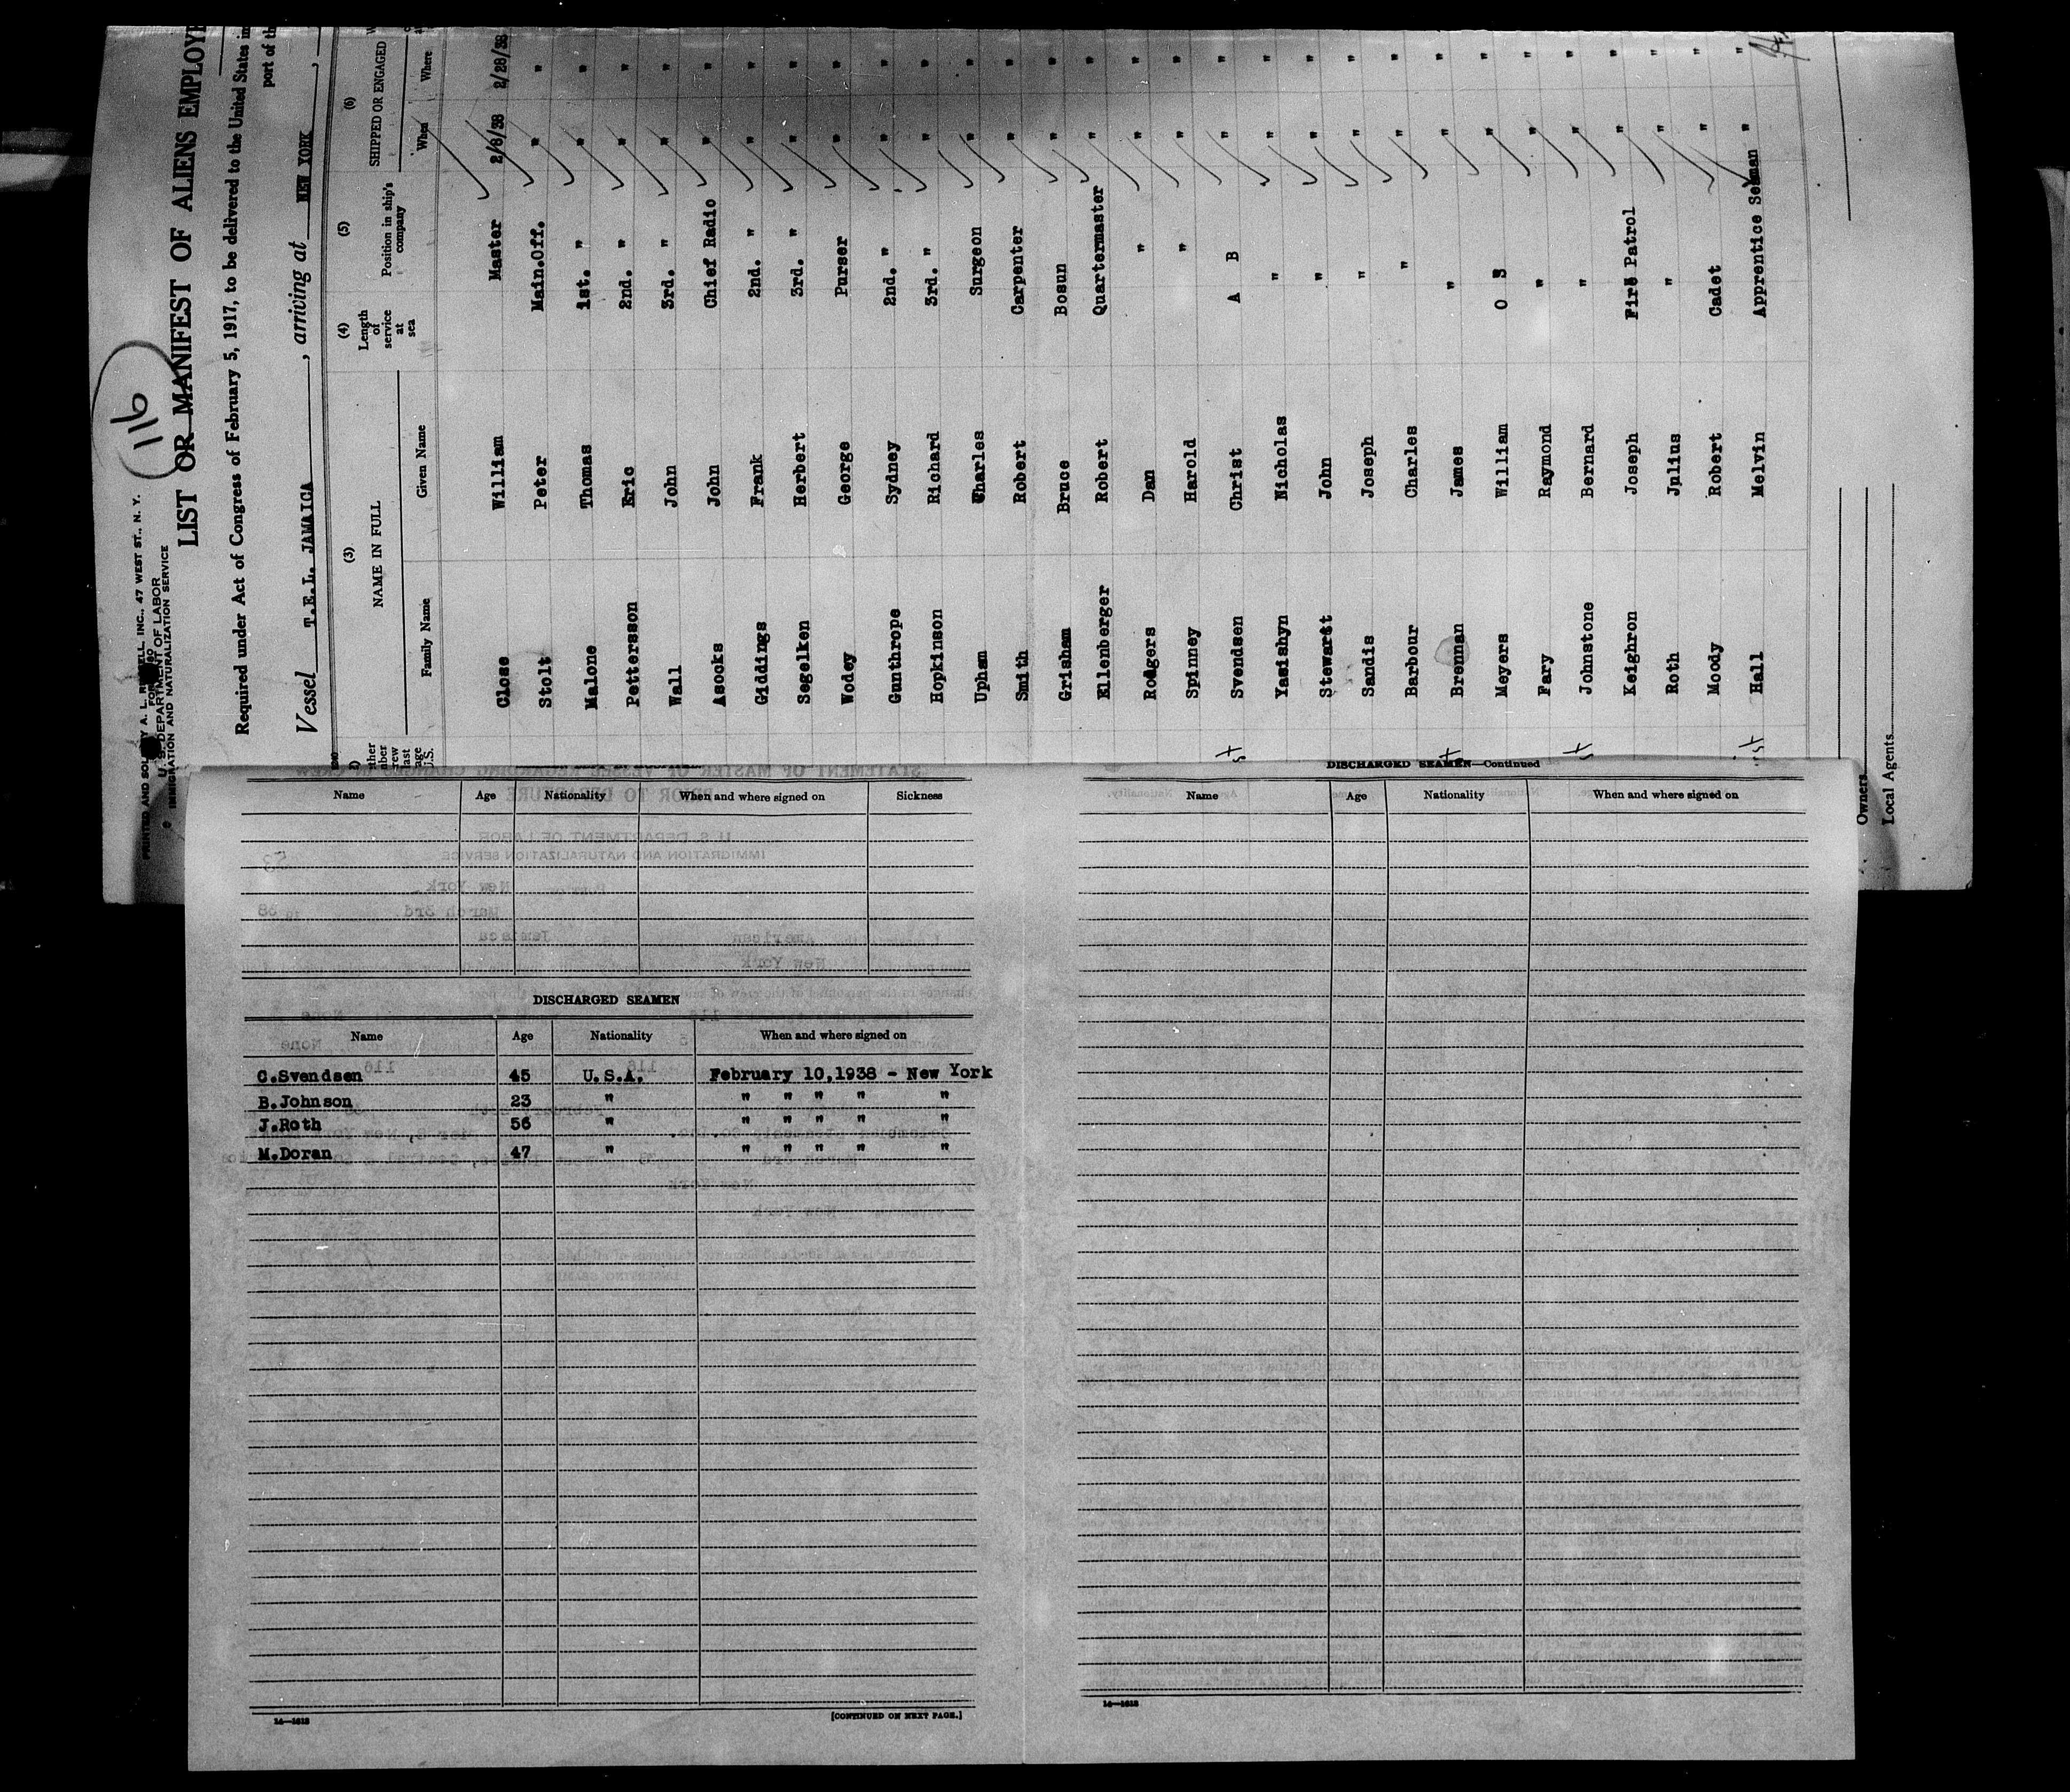 116
PRINTED AND SOLD BY A. L. RUSSELL, INC., 47 WEST ST., N. Y.
U. S. DEPARTMENT OF LABOR
IMMIGRATION AND NATURALIZATION SERVICE
LIST OR MANIFEST OF ALIENS EMPLOYE
Required under Act of Congress of February 5, 1917, to be delivered to the United States
port of th
Vessel T.E.L. JAMAICA , arriving at NEW YORK ,
(3) (4) (5) (6)
NAME IN FULL Length of service at sea Position in ship's company SHIPPED OR ENGAGED
Family Name Given Name When Where
Close William Master 2/6/38 2/28/38
Stolt Peter Main.Off. " "
Malone Thomas 1st. " " "
Pettersson Eric 2nd. " " "
Wall John 3rd. " " "
Asocks John Chief Radio " "
Giddings Frank 2nd. " " "
Segelken Herbert 3rd. " " "
Wodey George Purser " "
Gunthrope Sydney 2nd. " " "
Hopkinson Richard 3rd. " " "
Upham Charles Surgeon " "
Smith Robert Carpenter " "
Grisham Bruce Bosun " "
Ellenberger Robert Quartermaster " "
Rodgers Dan " " "
Spinney Harold " " "
Svendsen Christ A B " "
Yasishyn Nicholas " " "
Stewartt John " " "
Sandis Joseph " " "
Barbour Charles " " "
Brennan James " " "
Meyers William O S " "
Fary Raymond " " "
Johnstone Bernard " " "
Keighron Joseph Fire Patrol " "
Roth Julius " " "
Moody Robert Cadet " "
Hall Melvin Apprentice Seaman " "
Owners
Local Agents
Name Age Nationality When and where signed on Sickness
DISCHARGED SEAMEN
Name Age Nationality When and where signed on
C.Svendsen 45 U.S.A. February 10,1938 - New York
B.Johnson 23 " " " " " "
J.Roth 56 " " " " " "
M.Doran 47 " " " " " "
14—1613
[CONTINUED ON NEXT PAGE.]
DISCHARGED SEAMEN—Continued
Name Age Nationality When and where signed on
14—1613